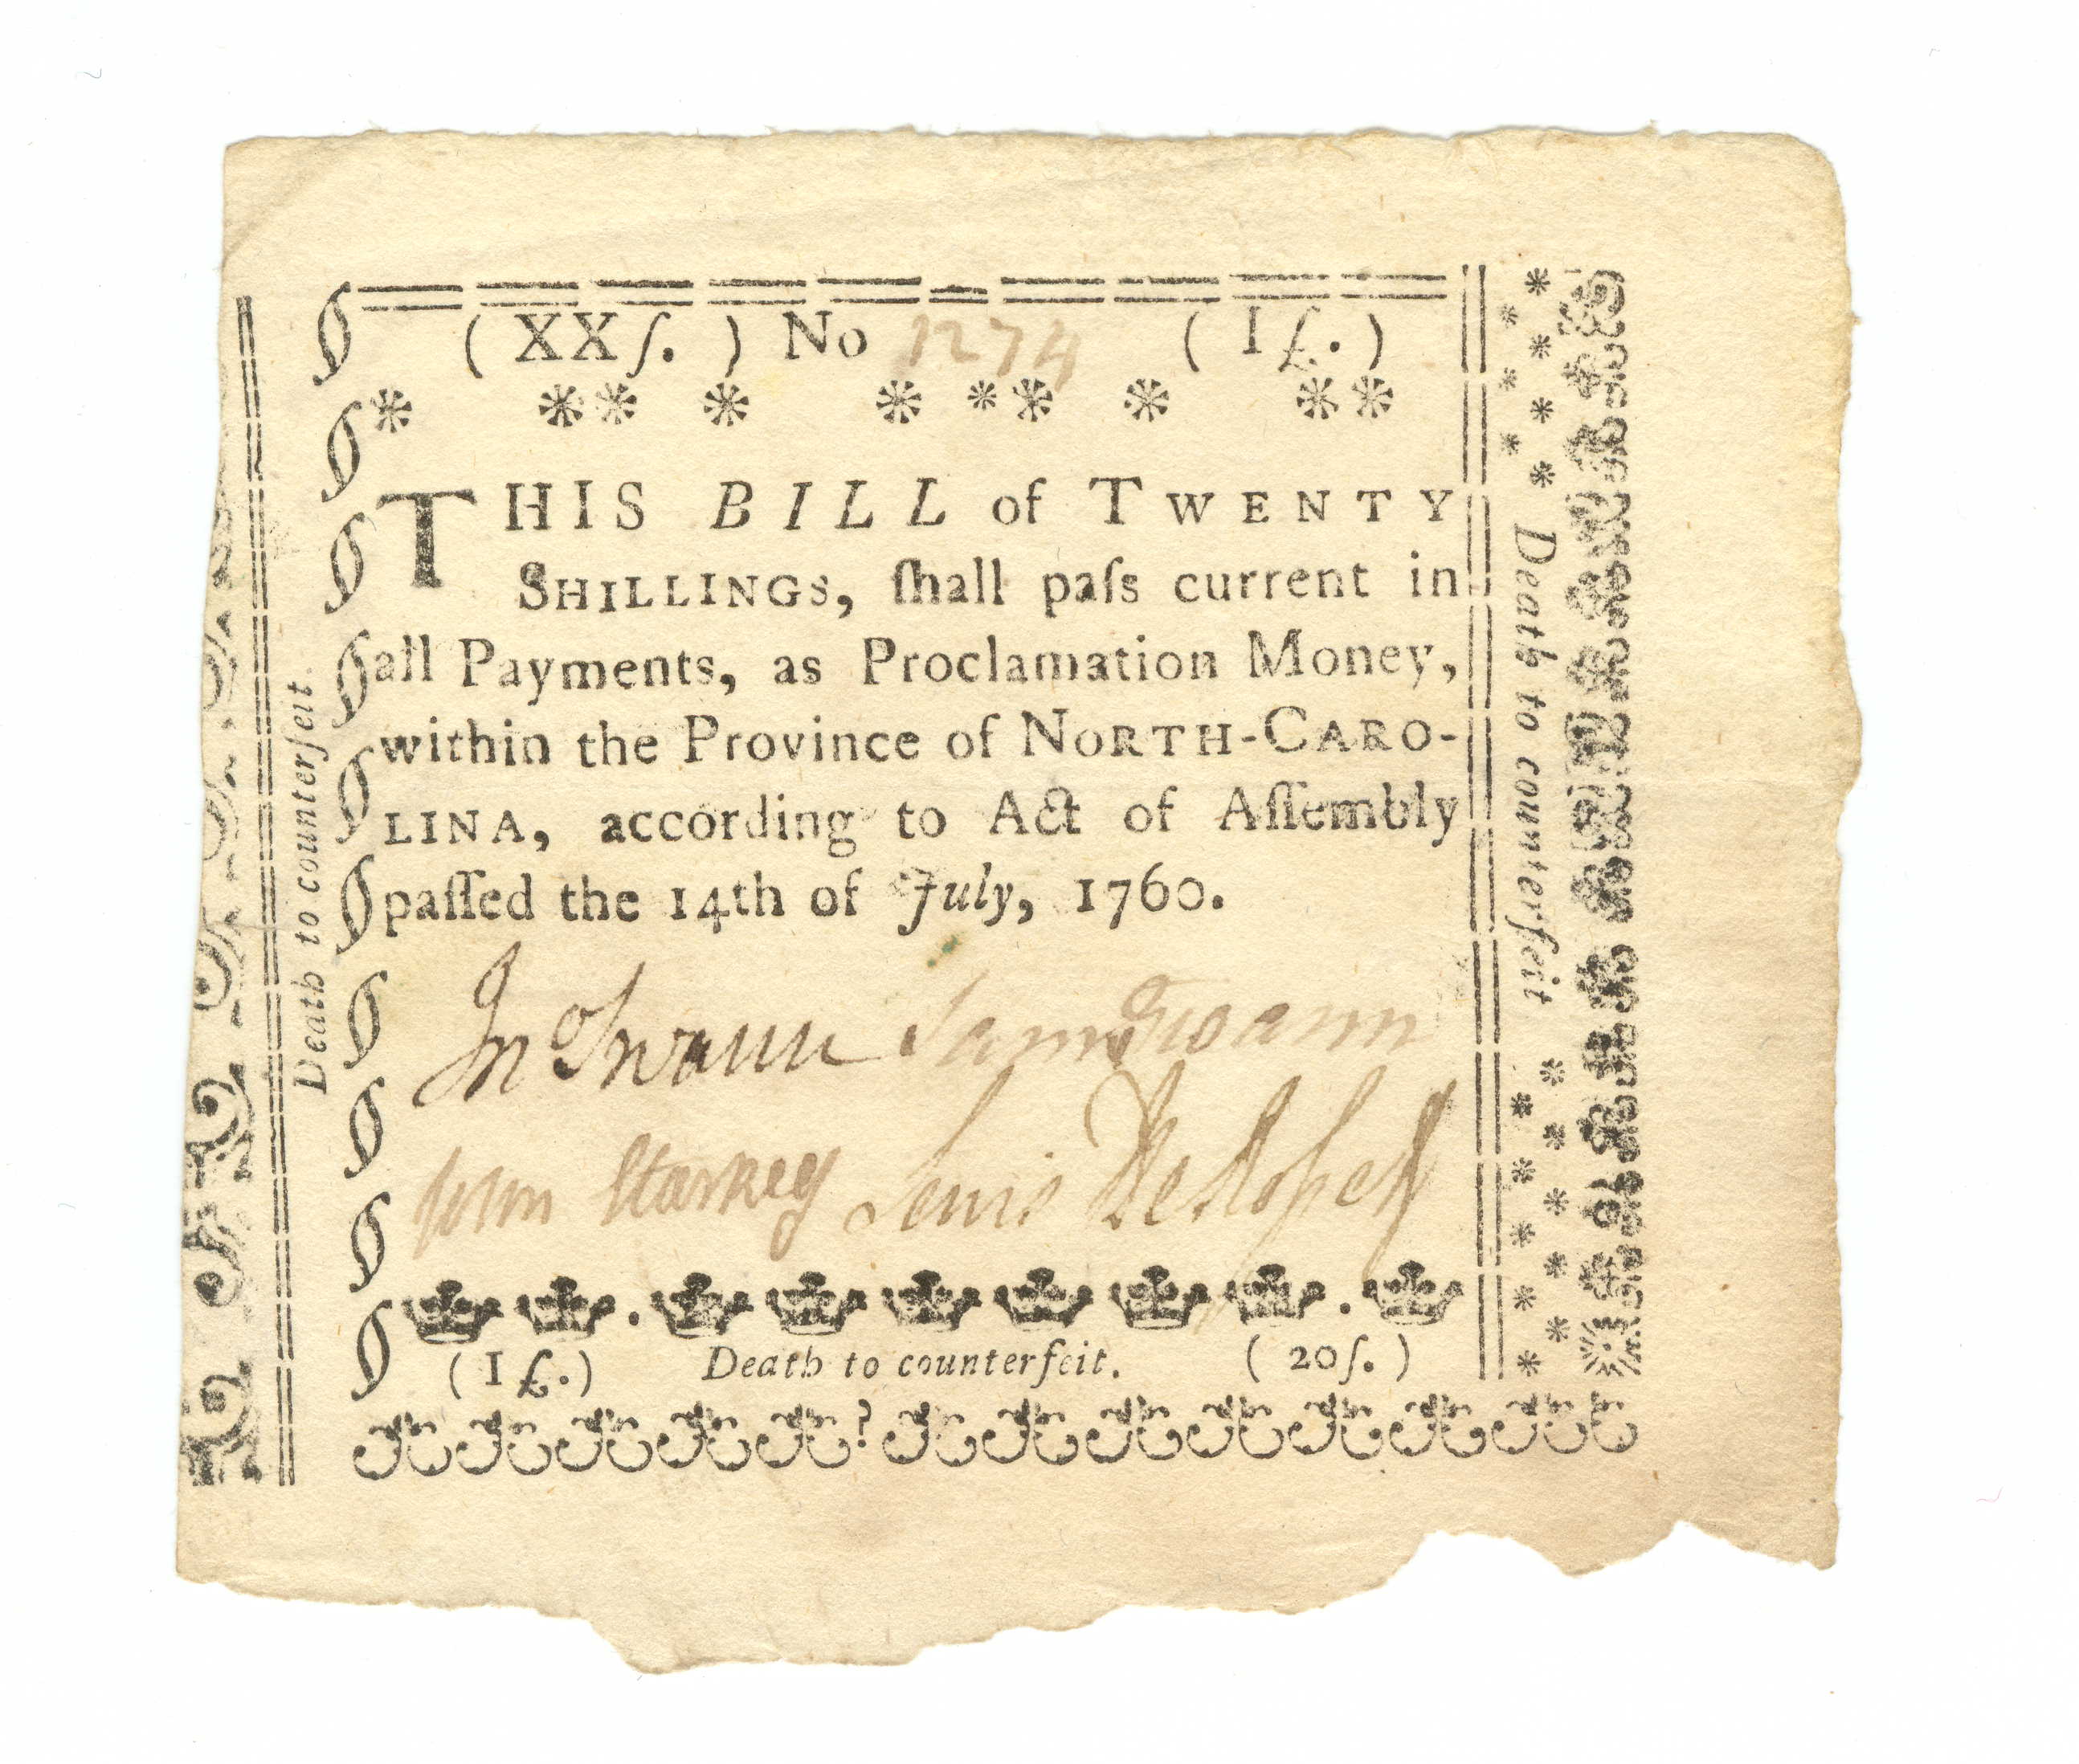 ( XXſ. ) No 1274 ( I £. )
THIS BILL of TWENTY
SHILLINGS, ſhall paſs current in
all Payments, as Proclamation Money,
within the Province of NORTH-CARO-
LINA, according to Act of Aſſembly
paſſed the 14th of July, 1760.
Jno Swann Sam Swann
John Starkey Lewis DeRosset
( I £. ) Death to counterfeit. ( 20ſ. )
Death to counterfeit.
Death to counterfeit